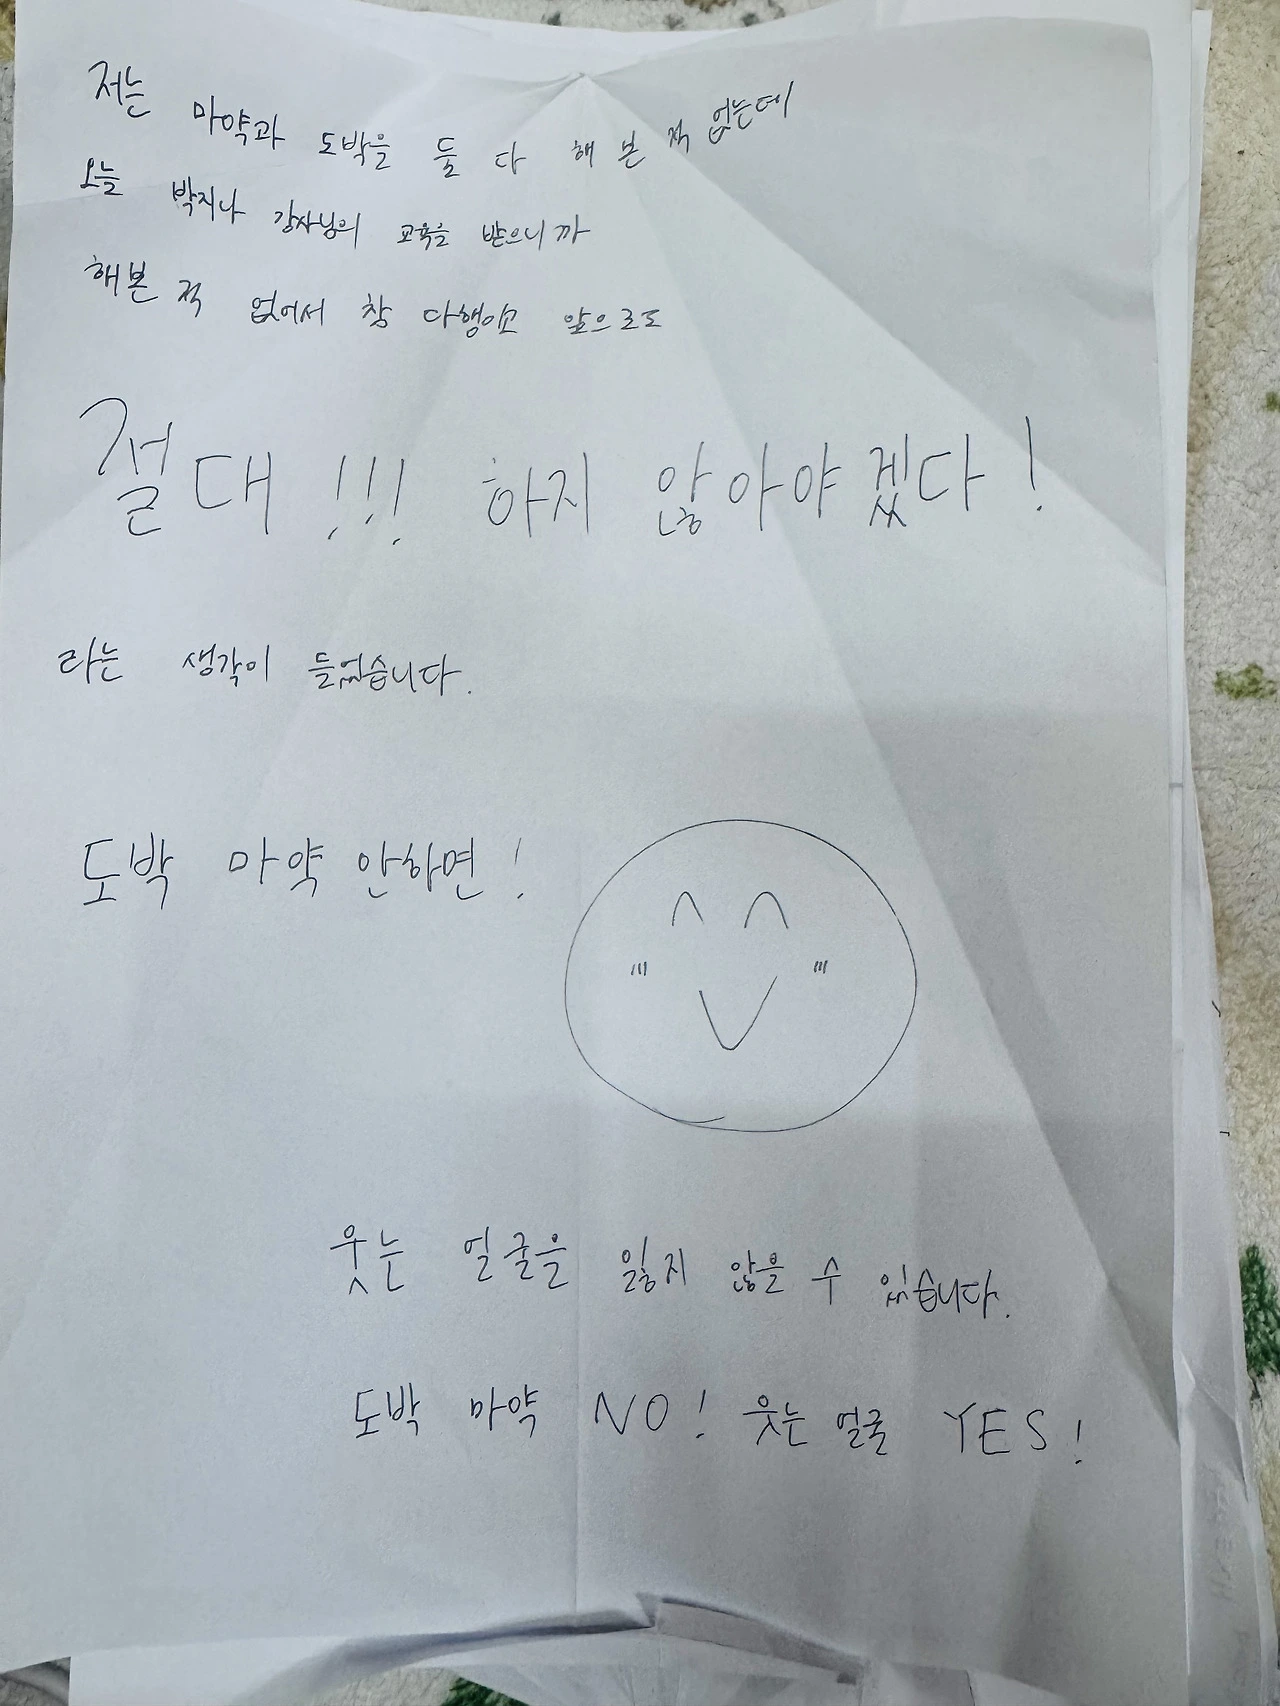 저는 마약과 도박을 둘 다 해 본 적 없는데
오늘 박지나 강사님의 교육을 받으니까
해본 적 없어서 참 다행이고 앞으로도
절대!!! 하지 않아야겠다!
라는 생각이 들었습니다.
도박 마약 안하면!
웃는 얼굴을 잃지 않을 수 있습니다.
도박 마약 NO! 웃는 얼굴 YES!